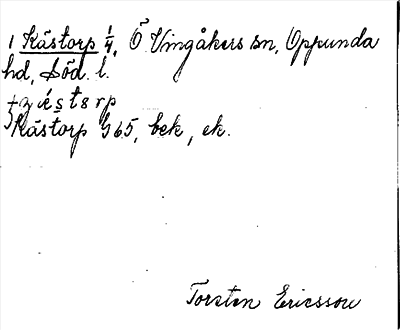 1 Kästorp 1/4, Ö. Vingåkers sn, Oppunda
hd, Söd. l.
Kästorp 565, bek, ek.
Torsten Ericsson